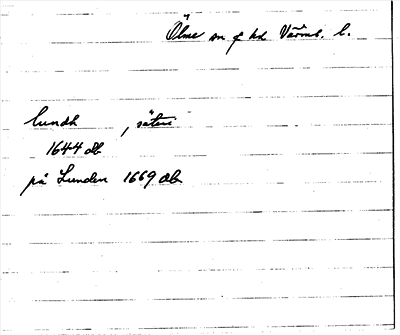 Ölme sn f hd Värml. l.
Lundh , säteri
1644 db
på Lunden 1669 db